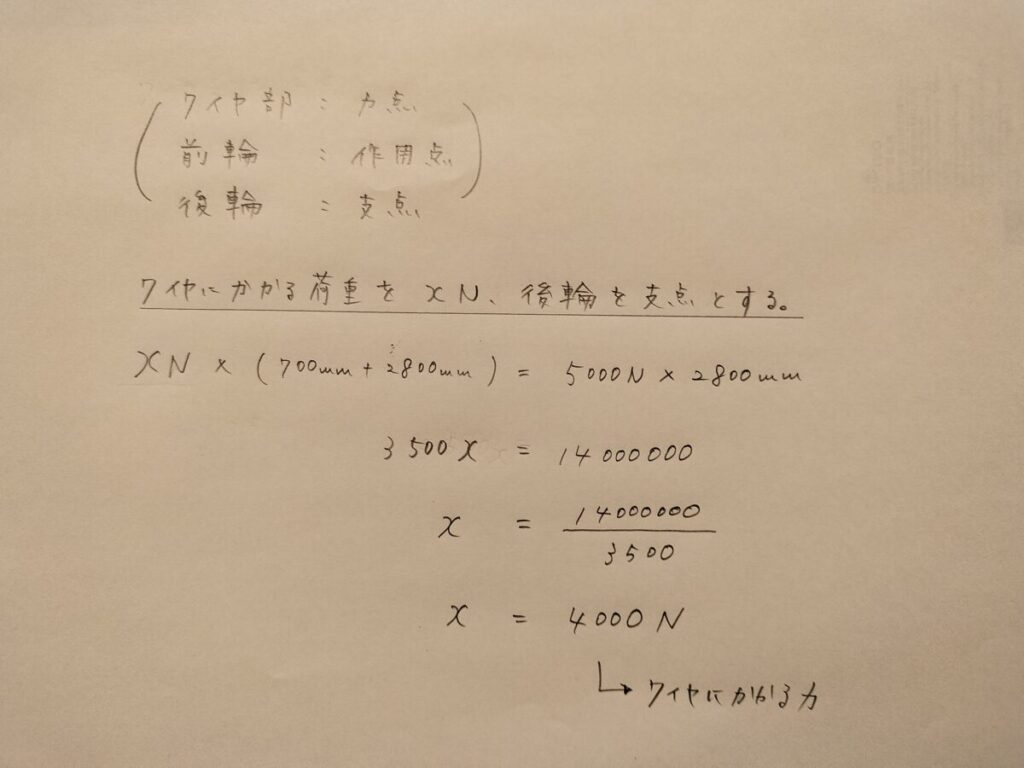 ワイヤ部 : 力点
前輪 : 作用点
後輪 : 支点
ワイヤにかかる荷重を xN、後輪を支点とする。
xN × (700mm + 2800mm) = 5000N × 2800mm
3500x = 14000000
x = 14000000 / 3500
x = 4000N
↳ ワイヤにかかる力